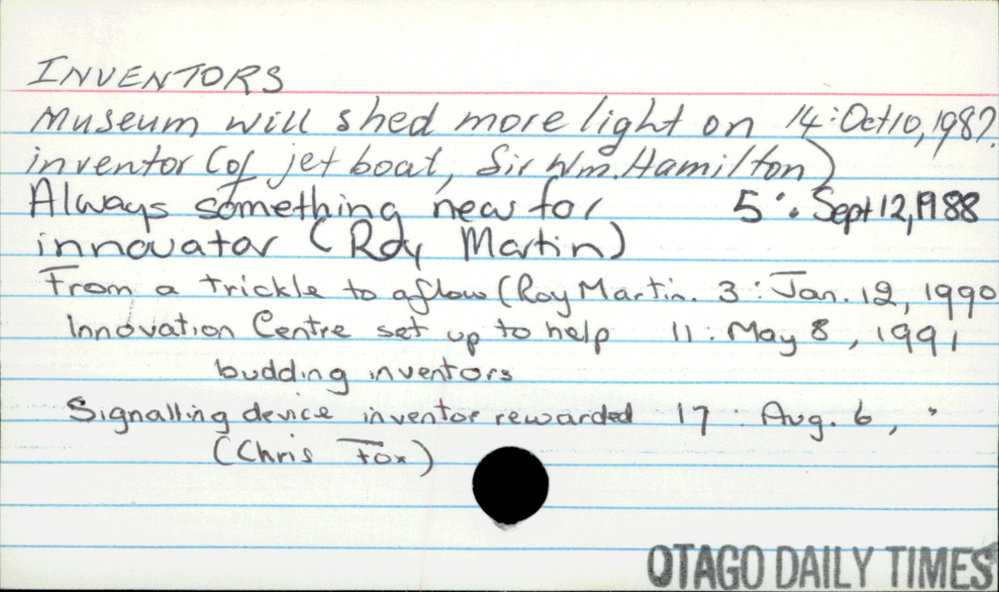 INVENTORS
Museum will shed more light on 14: Oct 10, 1987.
inventor (of jet boat, Sir Wm. Hamilton)
Always something new for 5: Sept 12, 1988
innovator (Roy Martin)
From a trickle to aflow (Roy Martin. 3: Jan. 12, 1990
Innovation Centre set up to help 11: May 8, 1991
budding inventors
Signalling device inventor rewarded 17: Aug. 6, "
(Chris Fox)
OTAGO DAILY TIMES